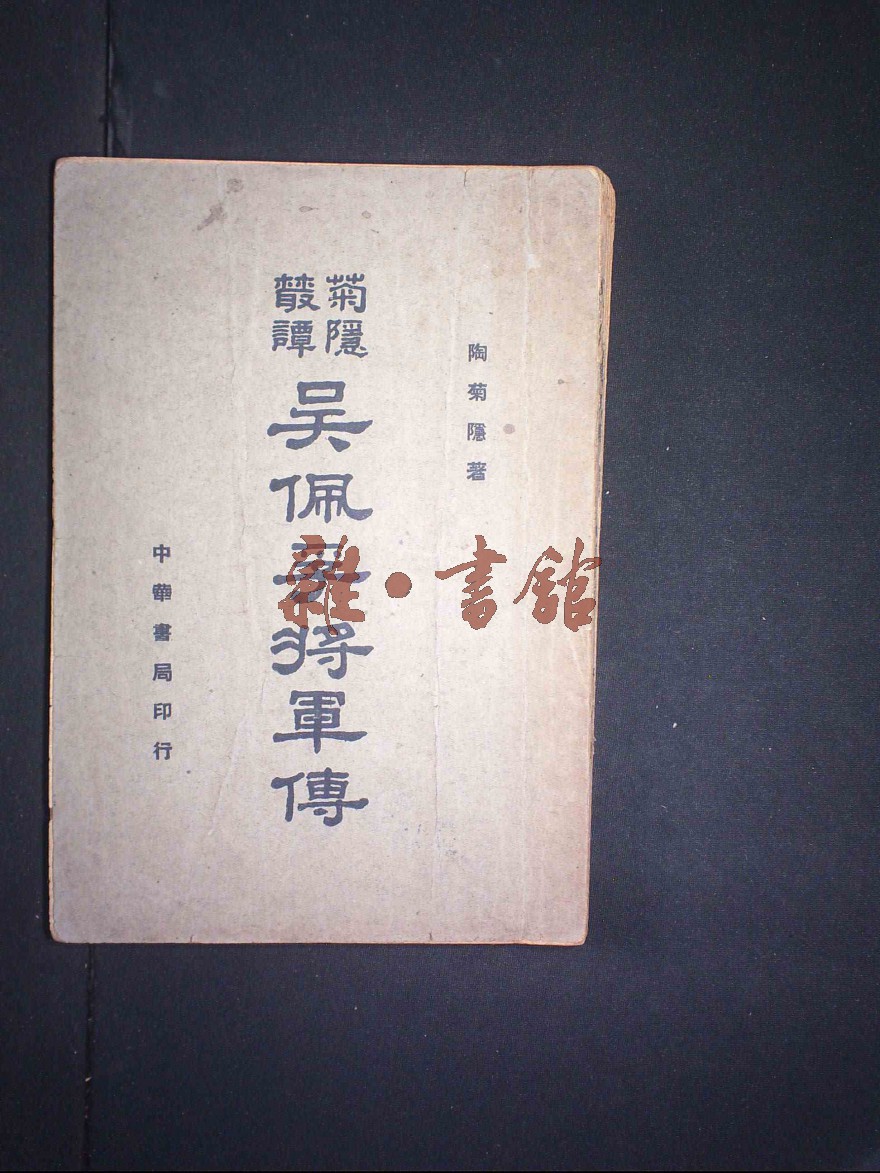 陶菊隱著
菊隱
叢譚
吳佩孚將軍傳
中華書局印行
雜·書館